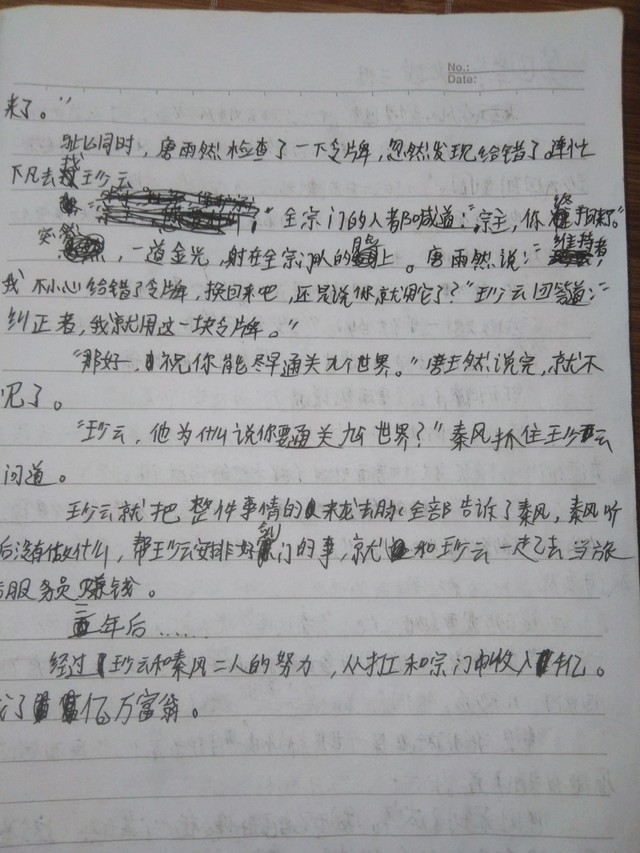 No.:
Date:
来了。”
此同时，唐雨然检查了一下令牌，忽然发现给错了连忙
下凡去找王珍云
全宗门的人都喊道：“宗主，你终于回来了。”
突然，一道金光，射在全宗门人的上。唐雨然说：“维持者，
我不小心给错了令牌，换回来吧，还是说你就用它了？”王珍云回答道：“
纠正者，我就用这一块令牌。”
“那好，祝你能尽早通关九个世界。”唐玉然说完，就不
见了。
“王珍云，他为什么说你要通关九个世界？”秦风抓住王珍云
问道。
王珍云就把整件事情的来龙去脉全部告诉了秦风，秦风听
后没有做什么，帮王珍云安排好宗门的事，就和王珍云一起去当旅
店服务员赚钱。
三年后……
经过王珍云和秦风二人的努力，从打工和宗门中收入亿。
了亿万富翁。